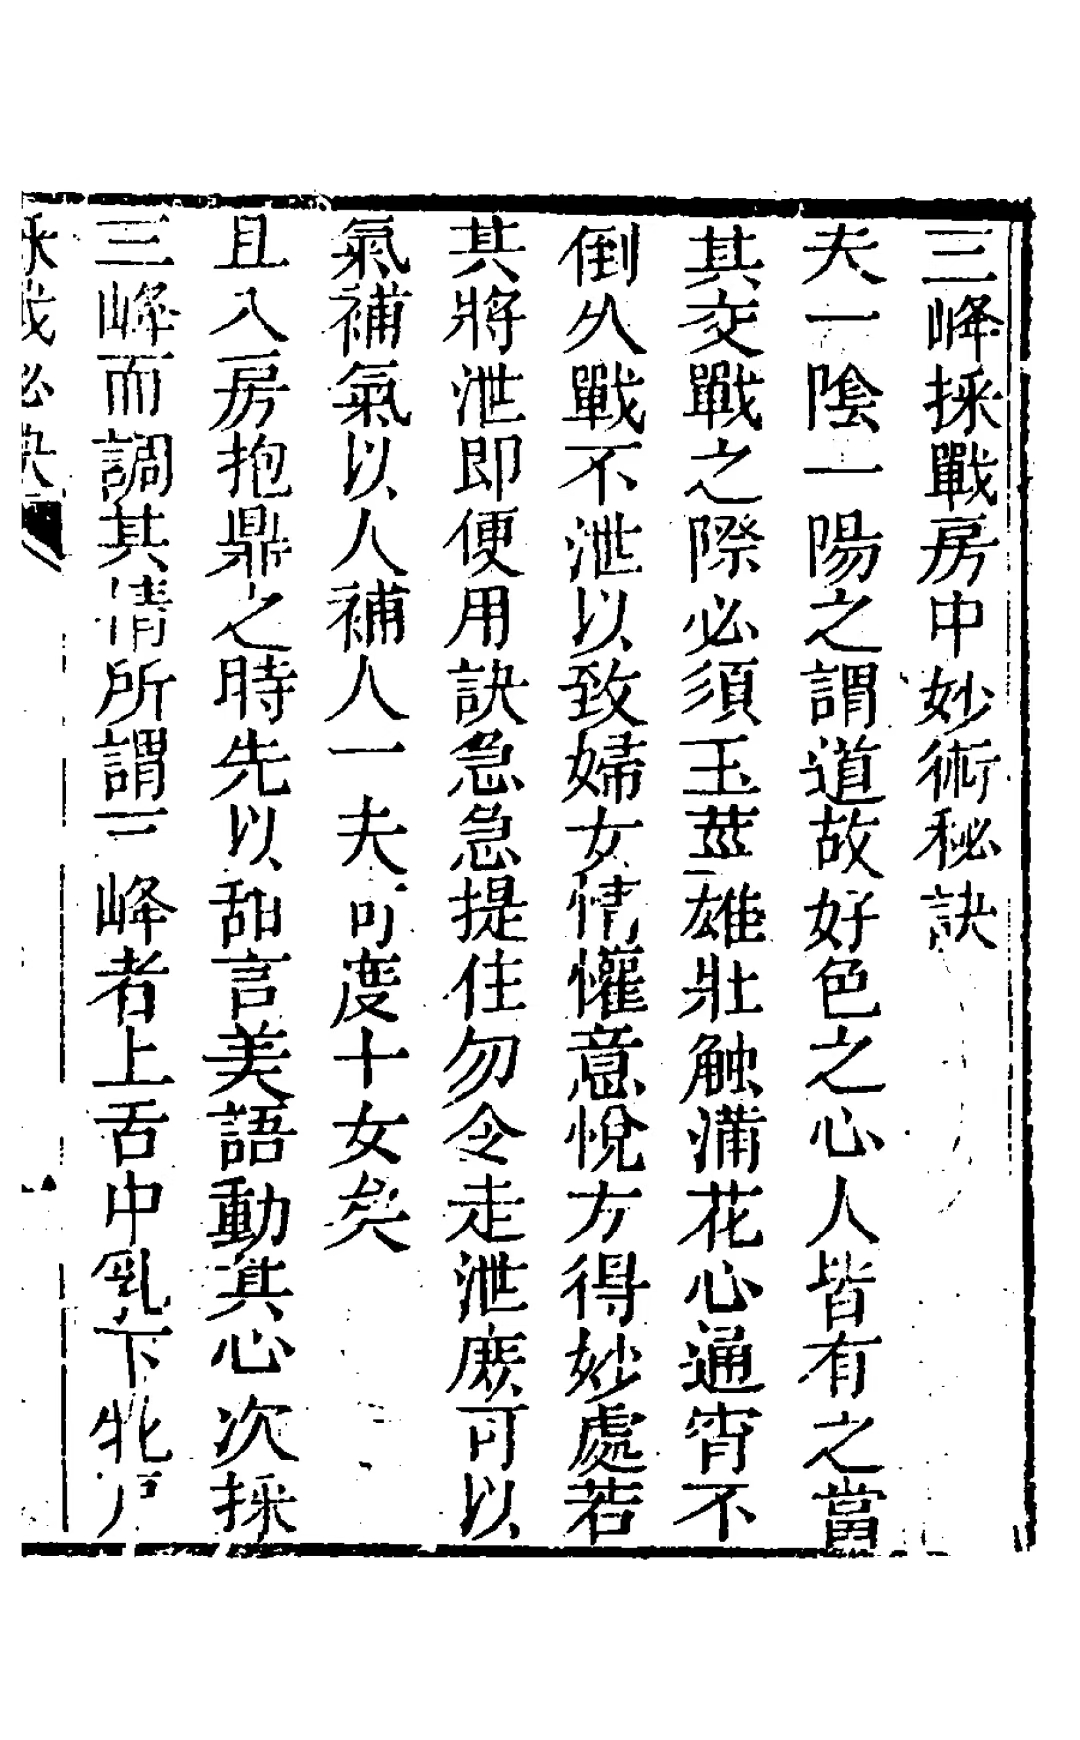 三峰採戰房中妙術秘訣
夫一陰一陽之謂道故好色之心人皆有之當
其交戰之際必須玉莖雄壯触滿花心通宵不
倒久戰不泄以致婦女情懽意悅方得妙處若
其將泄即便用訣急急提住勿令走泄庶可以
氣補氣以人補人一夫可度十女矣
且入房抱鼎之時先以甜言美語動其心次採
三峰而調其情所謂三峰者上舌中乳下牝戶
採戰必決